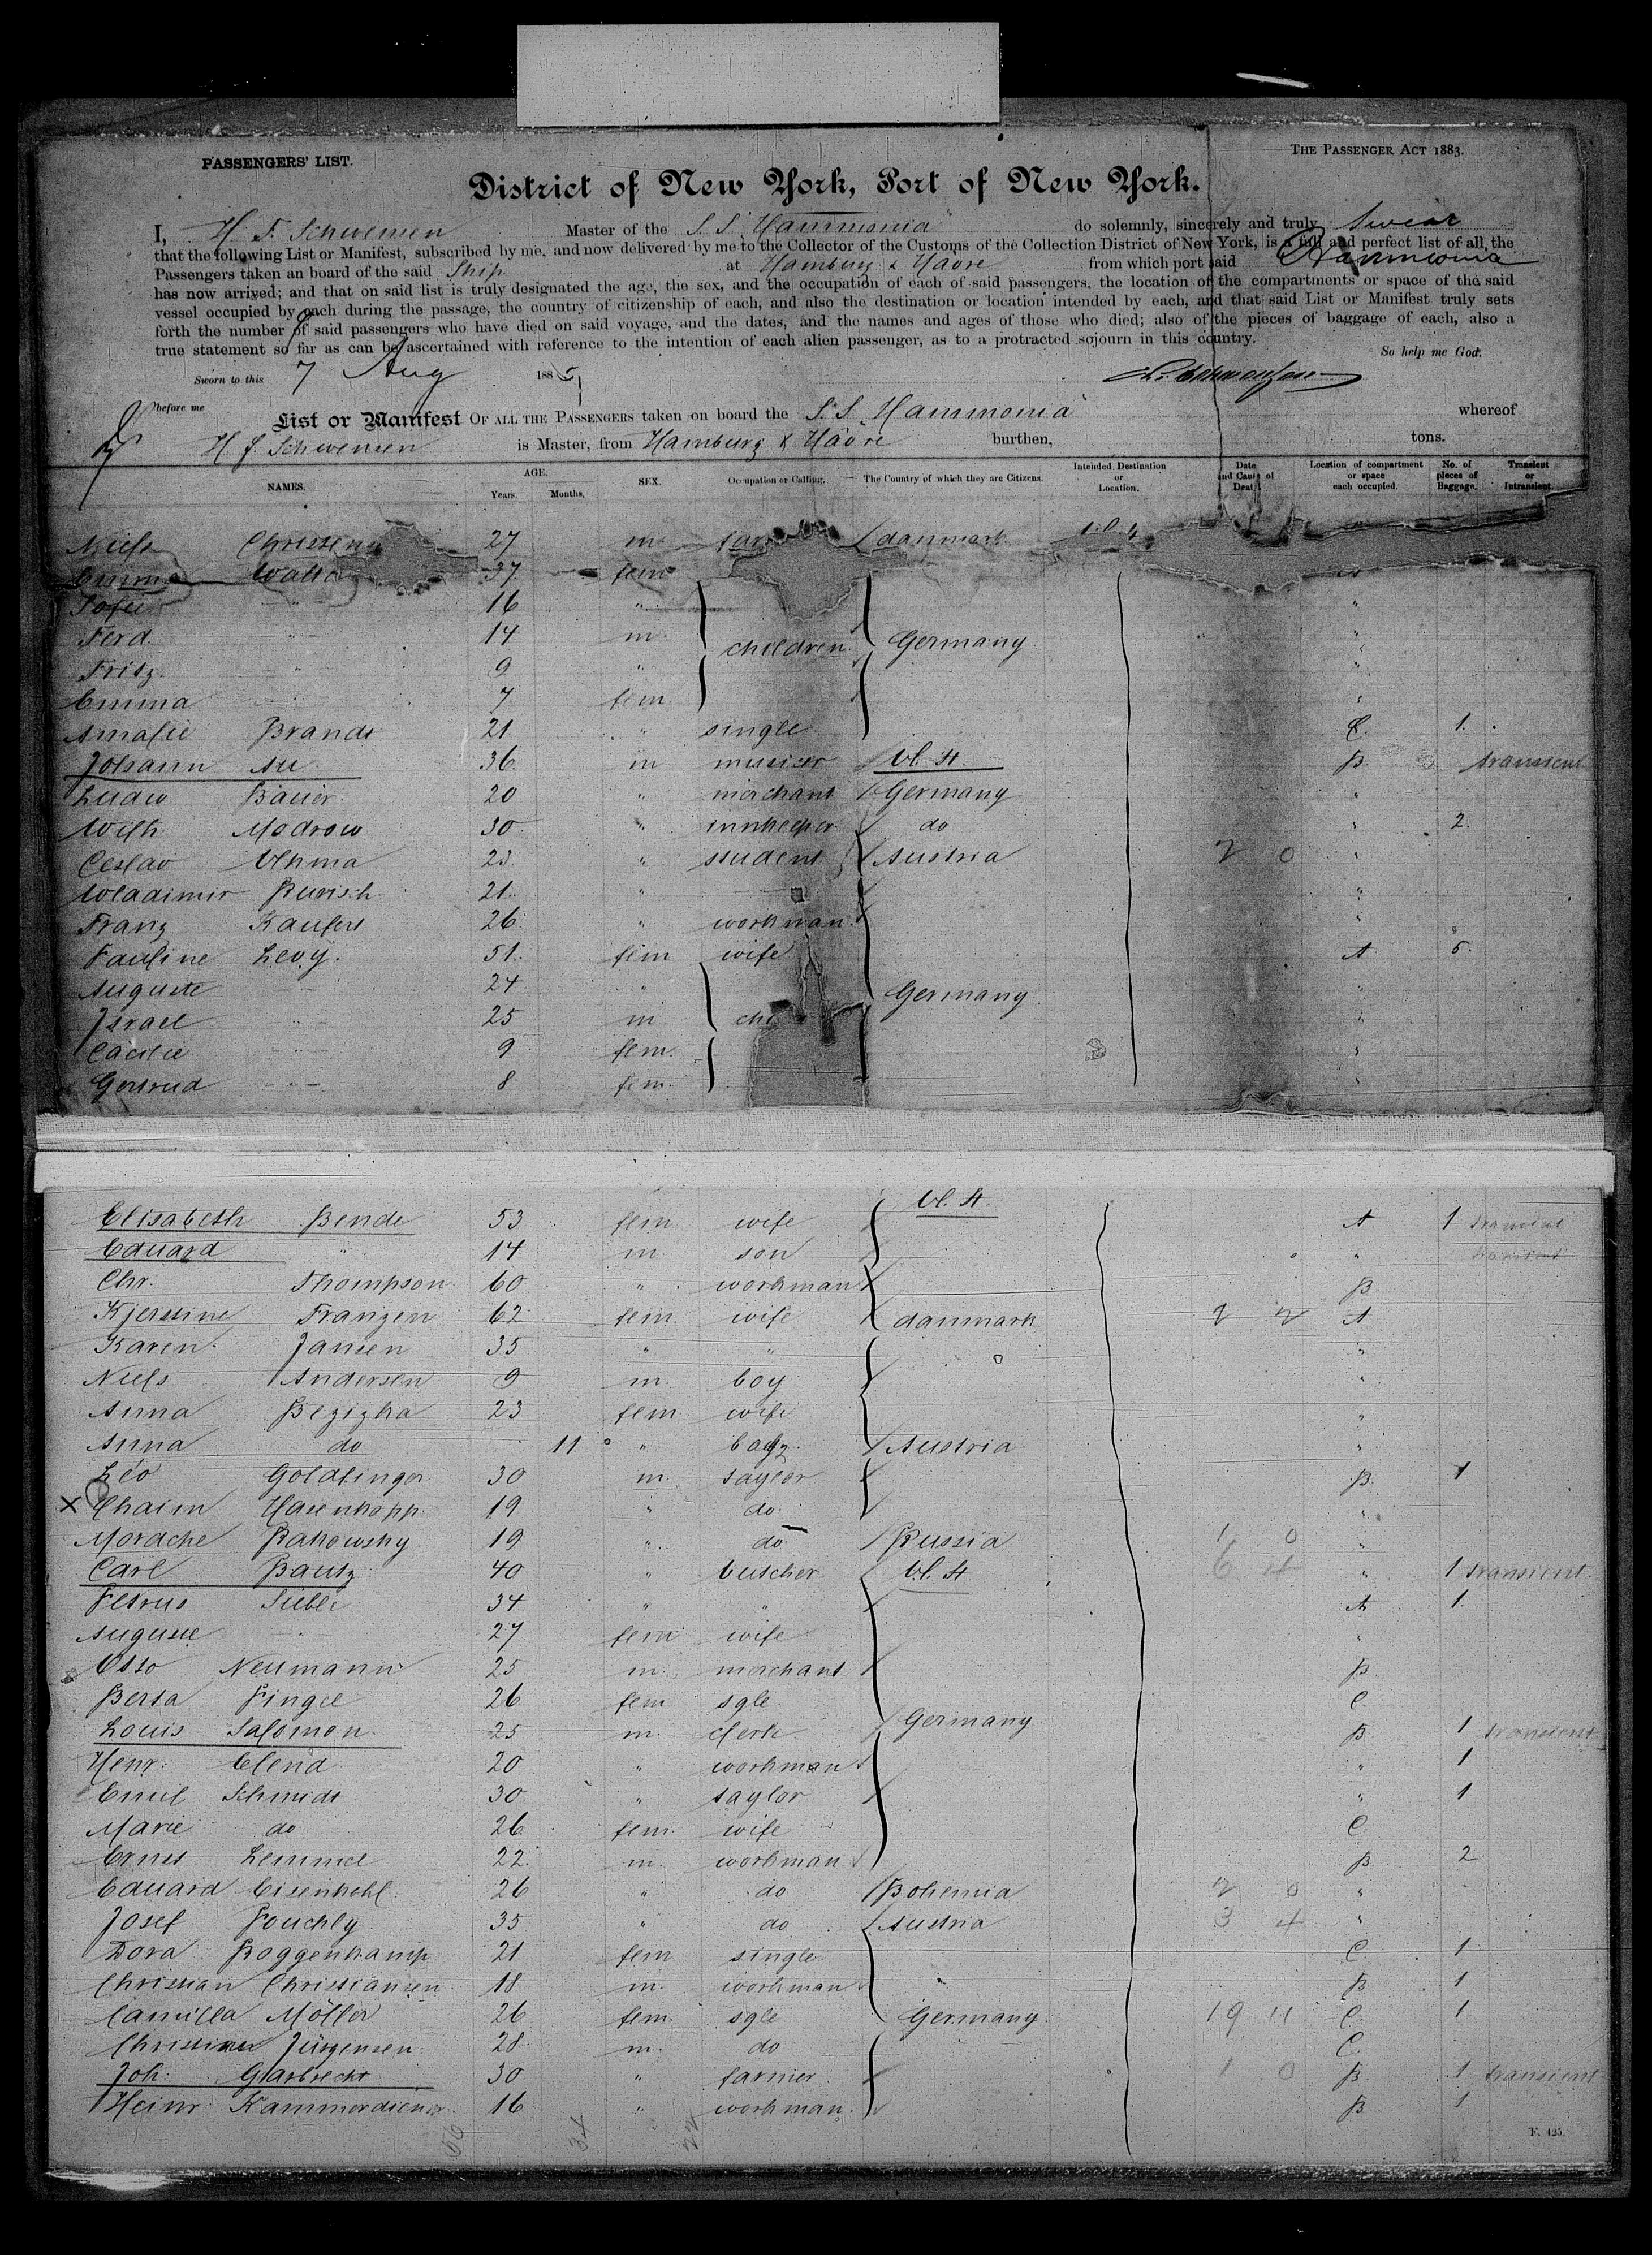 PASSENGERS' LIST.
THE PASSENGER ACT 1883.
District of New York, Port of New York.
I, H. F. Schwensen Master of the S. S. "Hammonia" do solemnly, sincerely and truly swear
that the following List or Manifest, subscribed by me, and now delivered by me to the Collector of the Customs of the Collection District of New York, is a full and perfect list of all the
Passengers taken an board of the said Ship at Hamburg & Havre from which port said Hammonia
has now arrived; and that on said list is truly designated the age, the sex, and the occupation of each of said passengers, the location of the compartments or space of the said
vessel occupied by each during the passage, the country of citizenship of each, and also the destination or location intended by each, and that said List or Manifest truly sets
forth the number of said passengers who have died on said voyage, and the dates, and the names and ages of those who died; also of the pieces of baggage of each, also a
true statement so far as can be ascertained with reference to the intention of each alien passenger, as to a protracted sojourn in this country.
So help me God.
Sworn to this 7 Aug 1885
before me
List or Manifest OF ALL THE PASSENGERS taken on board the S. S. Hammonia whereof
H. F. Schwensen is Master, from Hamburg & Havre burthen, tons.
NAMES. AGE. Years. Months. SEX. Occupation or Calling. The Country of which they are Citizens. Intended Destination or Location. Date and Cause of Death Location of compartment or space each occupied. No. of pieces of Baggage. Transient or Intransient.
Niels 27 m danmark
Emma 37 fem
16 "
Ferd. " 14 m children Germany "
Fritz. " 9 " "
Emma 7 fem "
Amalie Brandt 21 " single C. 1.
Johann Au 36 m Ul. St. B transient
Ludw Bauer 20 " merchant Germany "
Wilh. Modrow 30 " innkeeper do " 2.
Ceslav 23 " student Austria 2 0 "
Wladimir 21. " "
Franz 26 " workman "
Pauline Levy. 51. fem wife A 5.
Auguste 24 " Germany "
Israel " 25 m "
Cäcilie " 9 fem. "
Gertrud " 8 fem. "
Elisabeth Bende 53 fem wife Ul. St. A 1 transient
Eduard " 14 m son " transient
Chr. Thompson 60 " workman B
Kjerstine Franzen 62 fem. wife danmark 2 2 A
Karen Jansen 35 " " "
Niels Andersen 9 m. boy "
Anna 23 fem wife "
Anna do 11 " Austria "
Leo Goldfinger 30 m. taylor B. 1
X Chaim Hasenkopp 19 " do "
Mordche Rakowsky 19 " do Russia 1 0 "
Carl Bautz 40 " butcher Ul. St. 6 4 " 1 transient
Petrus 34 " " A 1.
Auguste " 27 fem wife "
Otto Neumann 25 m. merchant B
Berta 26 fem sgle C
Louis Salomon 25 m. clerk Germany B 1 transient
Henr. Elend 20 " workman " 1
Emil Schmidt 30 " taylor " 1
Marie do 26 fem. wife C
Ernst Lemmel 22 m. workman B 2
Eduard Eisenkohl 26 " do Bohemia 2 0 "
Josef Pouchly 35 " do Austria 3 4 "
Dora Roggenkamp 21 fem single C 1
Christian Christiansen 18 m. workman B 1
Camilla Möller 26 fem. sgle Germany 19 11 C 1
Jürgensen 28 m. do C.
Joh. Garbrecht 30 " farmer 1 0 B 1 transient
Heinr Kammerdiener 16 " workman B 1
F. 425.